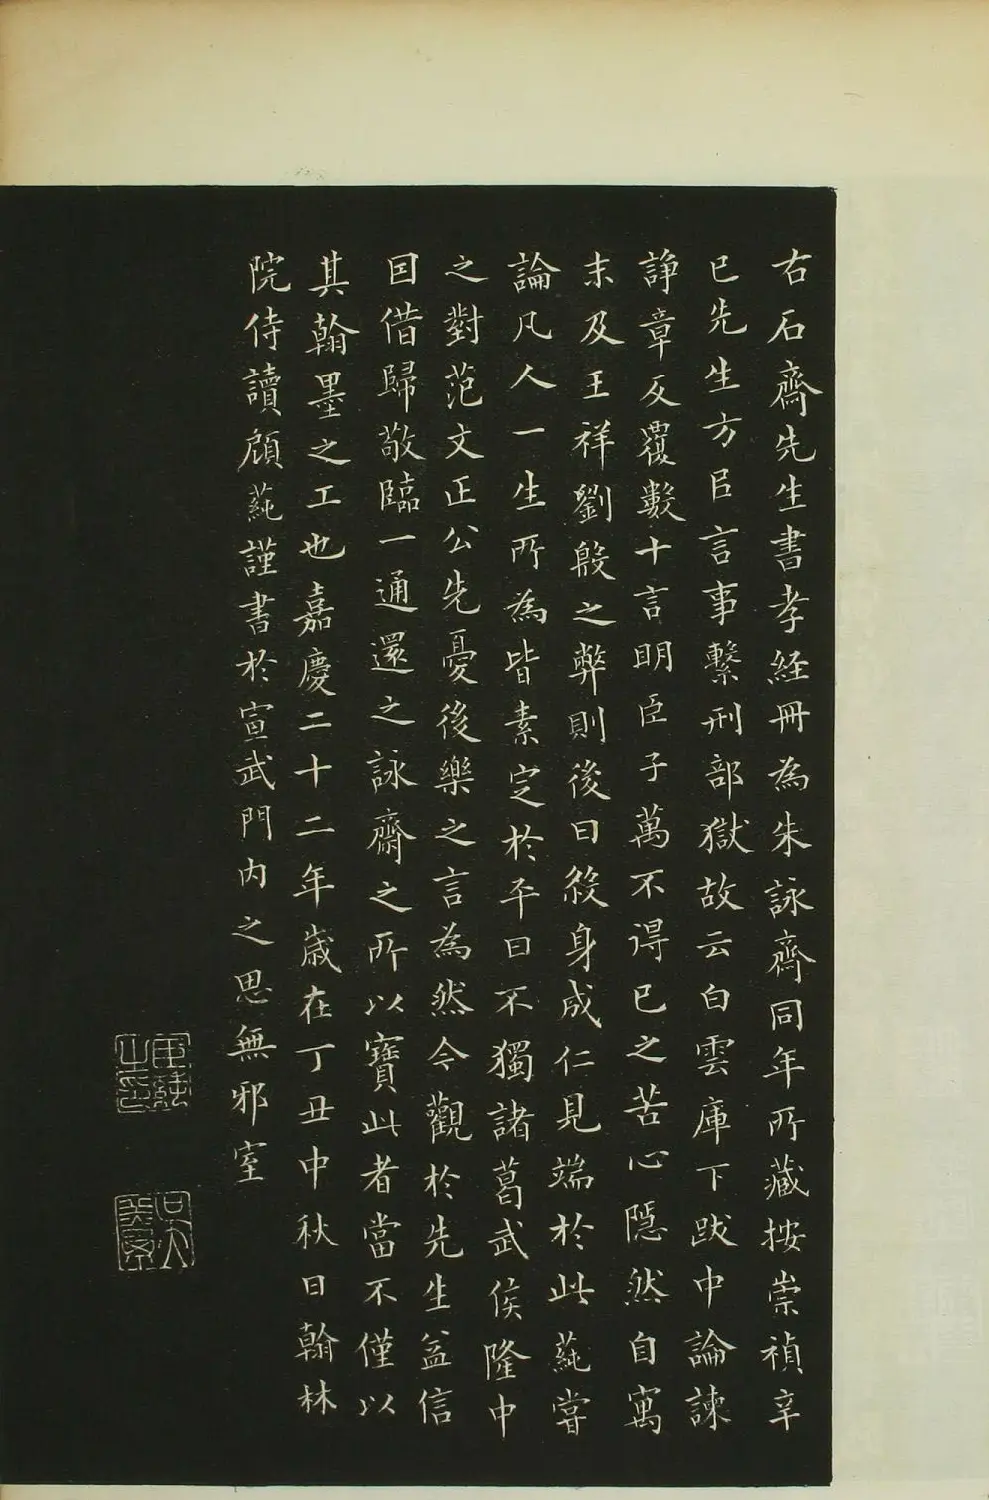 右石齋先生書孝経冊為朱詠齋同年所藏按崇禎辛
巳先生方㠯言事繫刑部獄故云白雲庫下跋中論諫
諍章反覆數十言明臣子萬不得已之苦心隱然自寓
末及王祥劉殷之弊則後日殺身成仁見端於此蒓嘗
論凡人一生所為皆素定於平日不獨諸葛武侯隆中
之對范文正公先憂後樂之言為然今觀於先生益信
因借歸敬臨一通還之詠齋之所以寶此者當不僅以
其翰墨之工也嘉慶二十二年歲在丁丑中秋日翰林
院侍讀顧蒓謹書於宣武門内之思無邪室